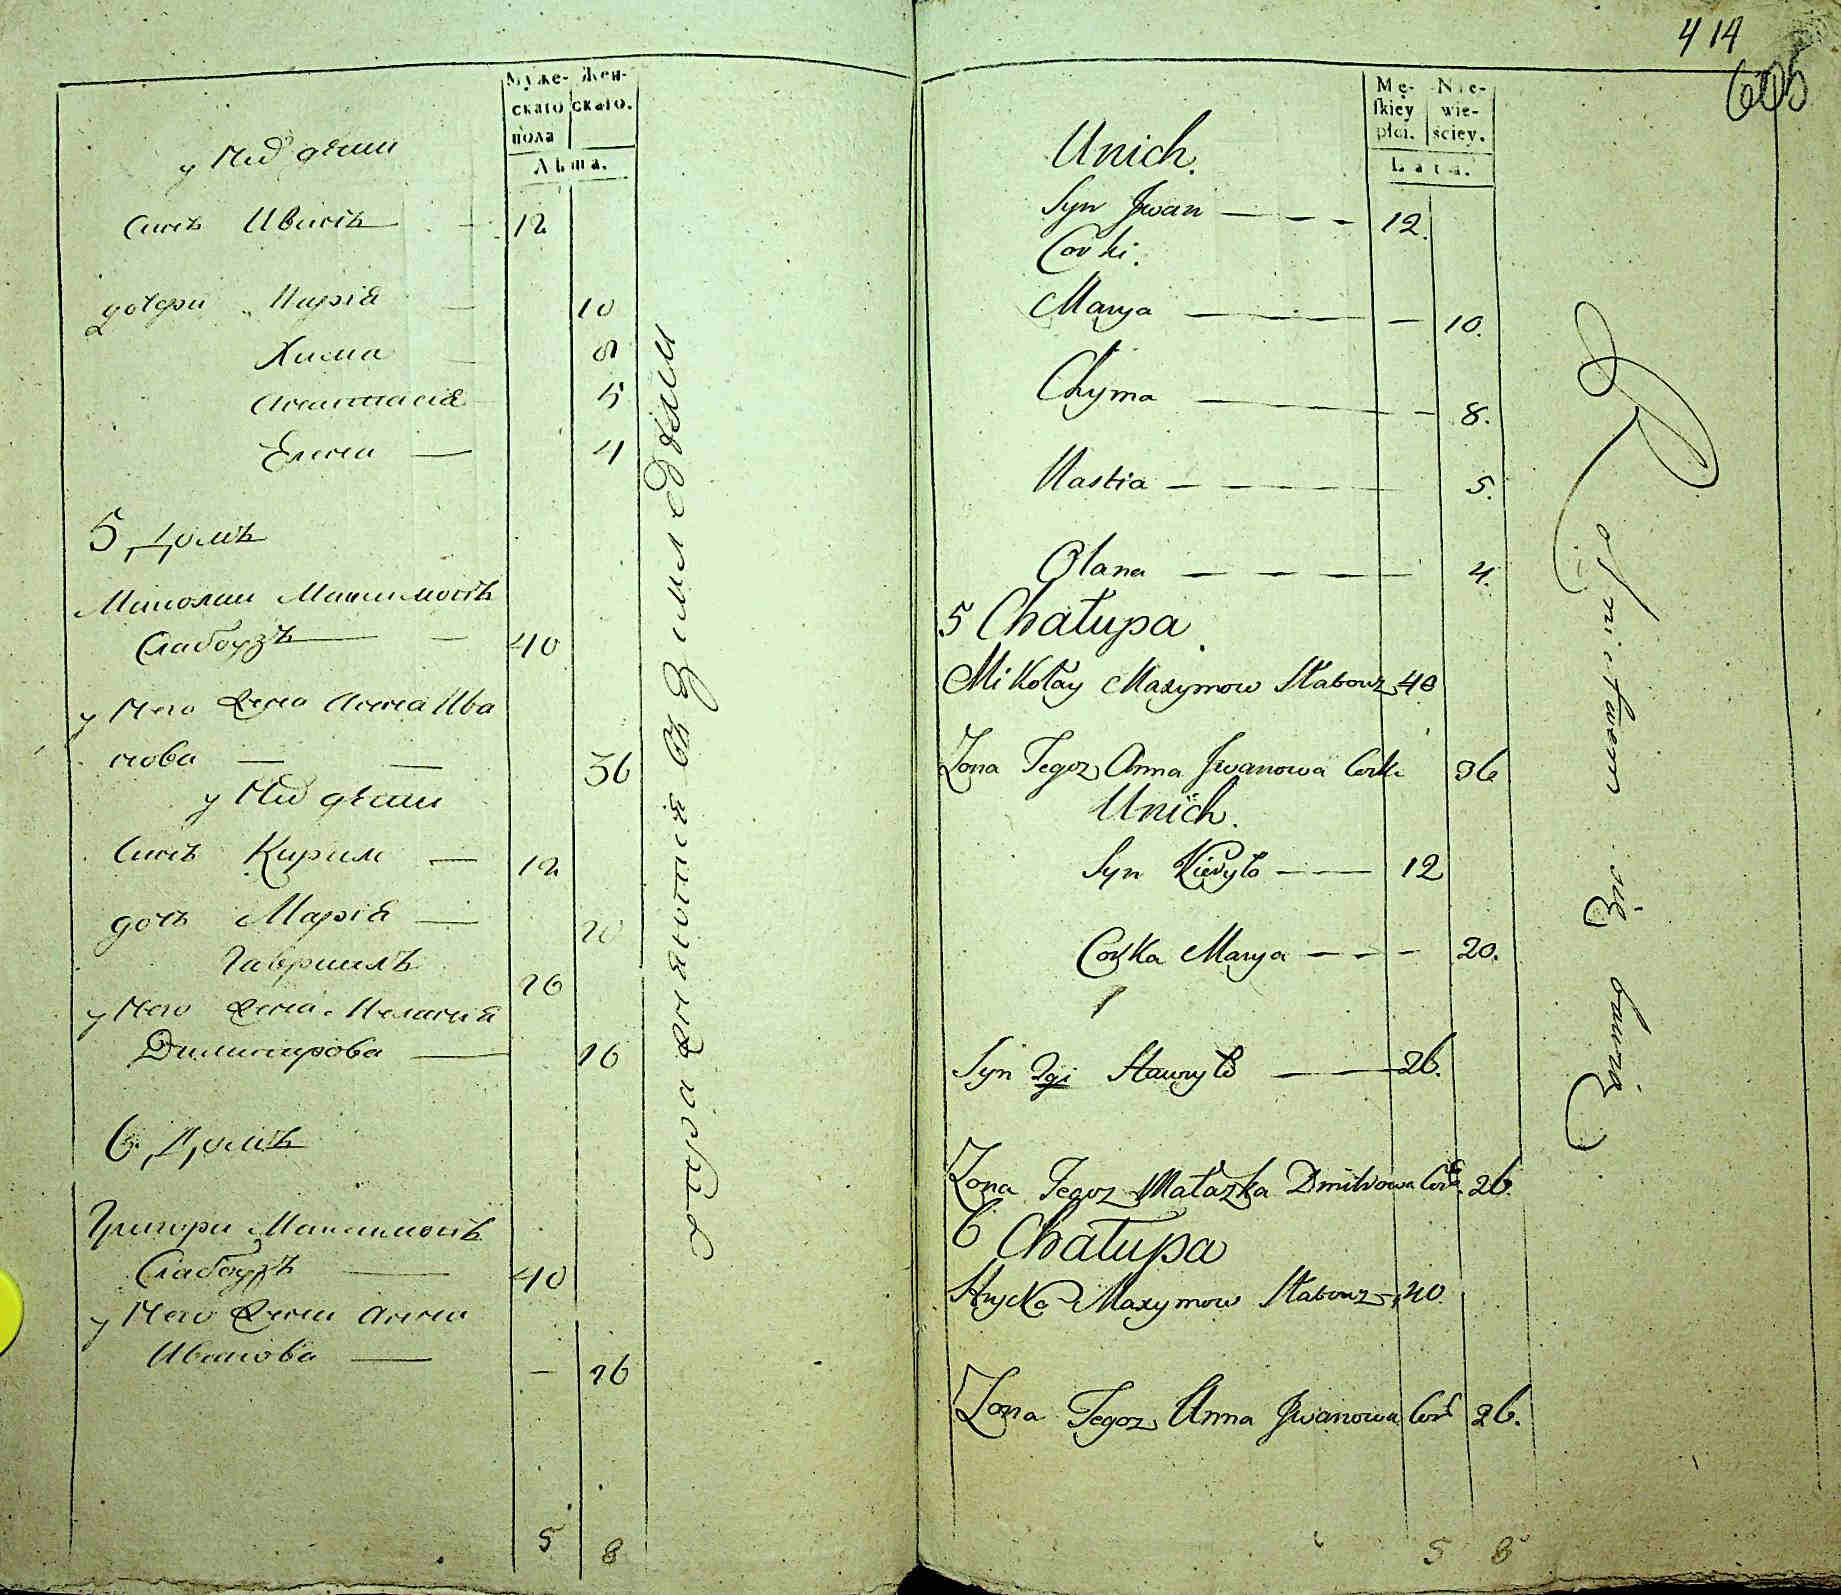 Муже-
скаго
пола
Жен-
скаго.
Лѣта.
у Нид дѣти
Синъ Иванъ — 12
дочери Марія — 10
Хима — 8
Анастасія — 5
Елена — 4
5 Домъ
Миколаи Максимовъ
Слабоузъ — 40
у Него Жена Анна Ива
нова — 36
у Нид дѣти
Синъ Кирил — 12
дочь Марія — 20
Гавриилъ 26
у Него Жена Меланія
Димитрова — 26
6. Домъ
Григори Максимовъ
Слабоузъ — 40
у Него Жена Анна
Иванова — — 26
5 8
414
605
Mę-
skiey
płci.
Nie-
wie-
ściey.
Lata.
Unich.
Syn Jwan — — — 12.
Corki.
Marya — — — — 10.
Chyma — — — — 8.
Nastia — — — — 5.
Olana — — — — 4.
5 Chałupa
Mikołay Maxymow Słabouz 40
Zona Tegoz Anna Jwanowa Cork: 36
Unich.
Syn Kiryło — — 12
Corka Marya — — — 20.
Syn 2gi Hawryło — — 26.
Zona Tegoz Małazka Dmitrowa Cork. 26.
6 Chałupa
Hrycko Maxymow Słabouz — 40.
Zona Tegoz Anna Jwanowa Cork 26.
5 8